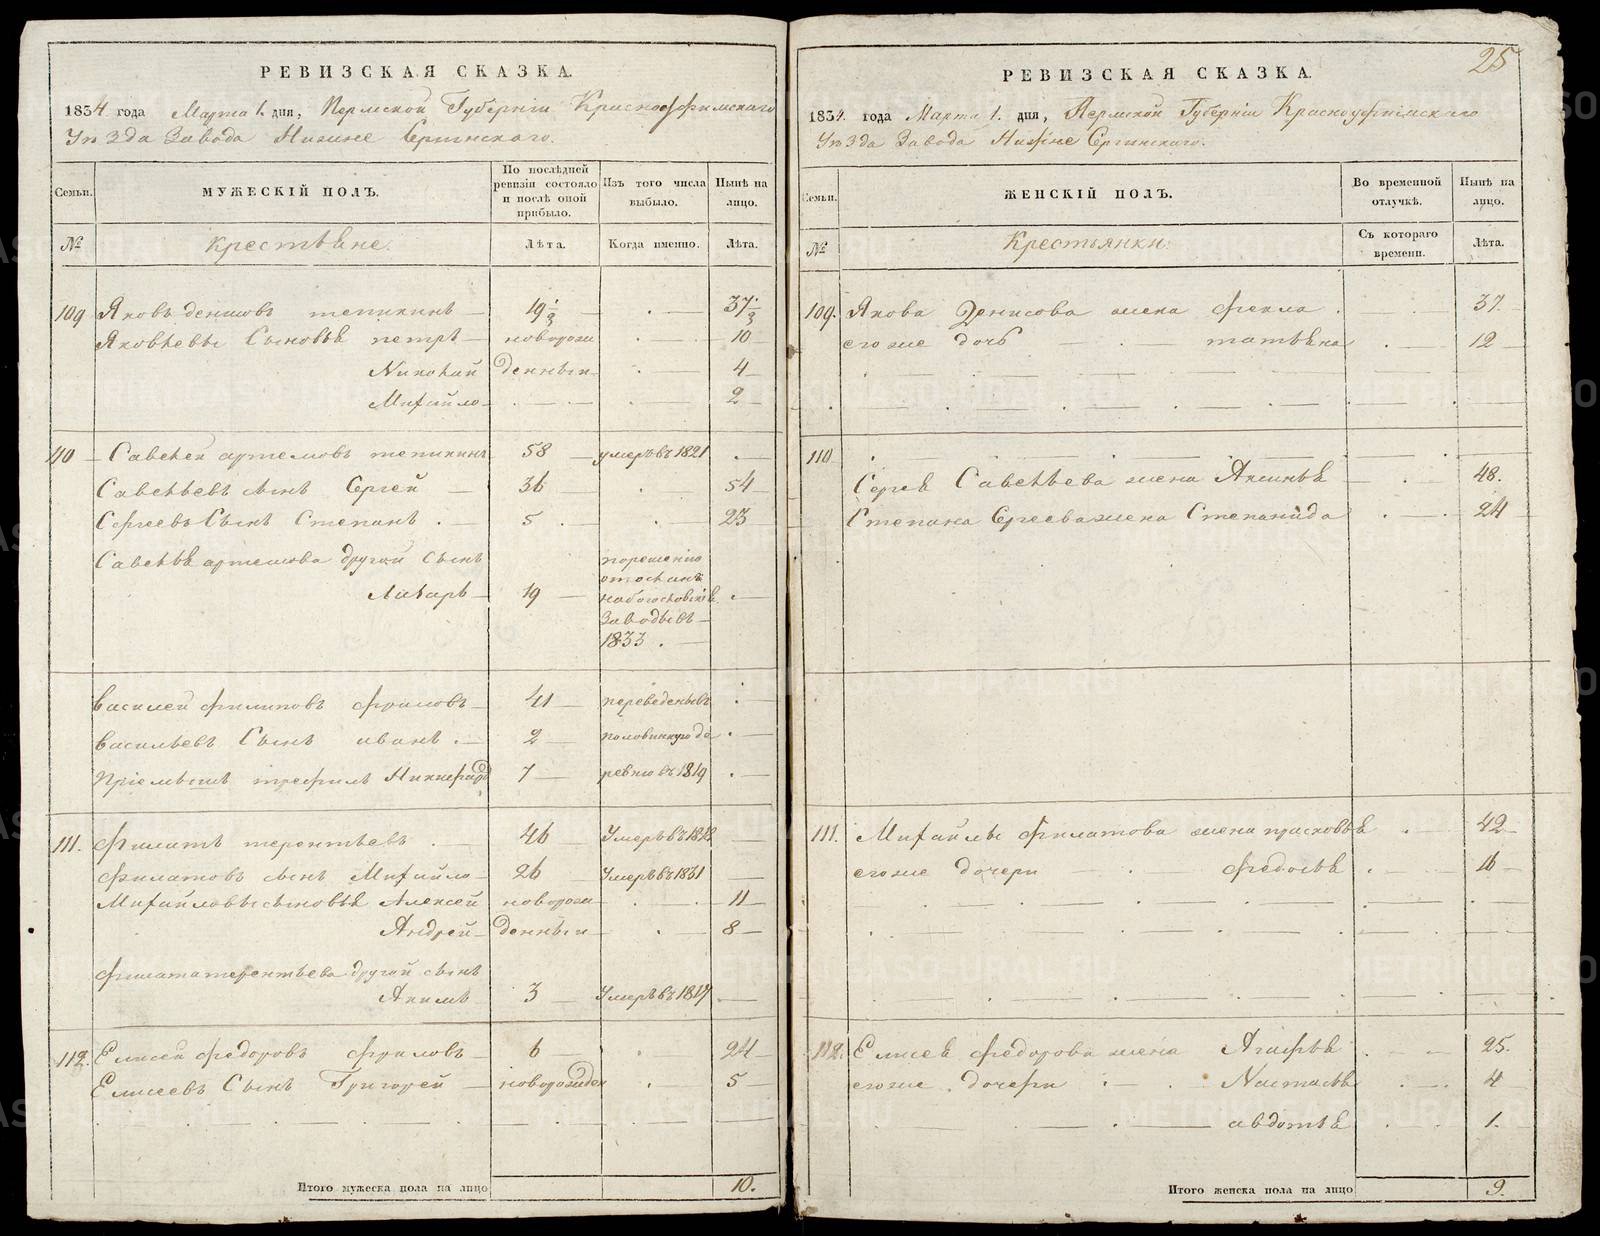 РЕВИЗСКАЯ СКАЗКА.
1834 года Марта 1. дня, Пермской Губернiи Красноуфимскаго
Уѣзда Завода Нижне Сергинскаго.
Семьи. МУЖЕСКІЙ ПОЛЪ. По послѣдней ревизіи состояло и послѣ оной прибыло. Изъ того числа выбыло. Нынѣ на лицо.
№ Крестьяне. Лѣта. Когда именно. Лѣта.
109 Яковъ денисовъ тепикинъ 19½ 37½
Яковлевы Сыновья петръ новорож 10
Николай денныи 4
Михайло 2
110 Савелей артемовъ тепикинъ 58 умеръ въ 1821
Савельевъ сынъ Сергей 36 54
Сергеевъ Сынъ Степанъ 5 23
Савелья артемова другой Сынъ порешению
отосланъ
Лазарь 19 на богословскiя
Заводы въ
1833
василей филиповъ фроловъ 41 переведены въ
васильевъ Сынъ иванъ 2 половинную де
Прiемышъ трефилъ Никифоровъ 7 ревню въ 1819
111. Филатъ терентьевъ 46 Умеръ въ
Филатовъ сынъ Михайло 26 Умеръ въ 1831
Михайловы сыновья Алексей новорож 11
Андрей денныи 8
Филата терентьева другой сынъ
Акимъ 3 Умеръ въ 1817
112. Елисей федоровъ фроловъ 6 24
Елисеевъ Сынъ Григорей новорожден 5
Итого мужеска пола на лицо 10.
25
РЕВИЗСКАЯ СКАЗКА.
1834. года Марта 1. дня, Пермской Губернiи Красноуфимскаго
Уѣзда Завода Нижне Сергинскаго.
Семьи. ЖЕНСКІЙ ПОЛЪ. Во временной отлучкѣ. Нынѣ на лицо.
№ Крестьянки. Съ котораго времени. Лѣта.
109. Якова Денисова жена фекла 37.
егоже дочь татьяна 12
110
Сергея Савельева жена Аксинья 48.
Степана Сргеева жена Степанида 24
111. Михайлы Филатова жена прасковья 42
егоже дочери федосья 16
112. Елисея федорова жена Агафья 25.
егоже дочери Настасья 4
авдотья 1.
Итого женска пола на лицо 9.